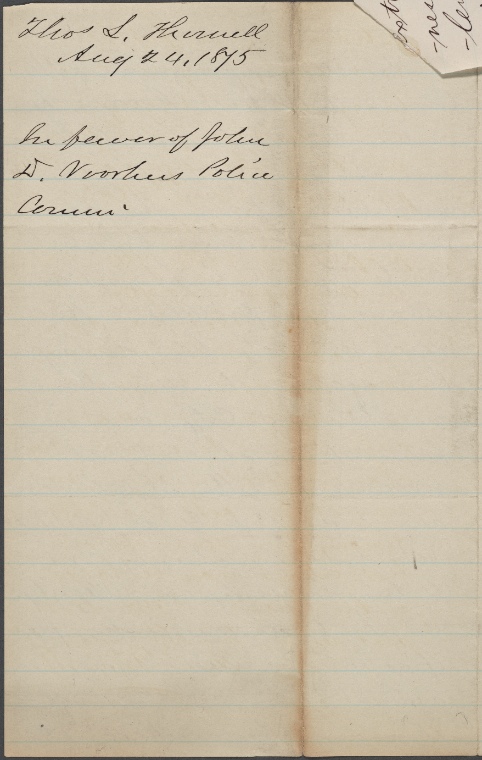 Thos S. Thornell
Aug 24, 1875
In favor of John
D. Voorhees Police
Commr